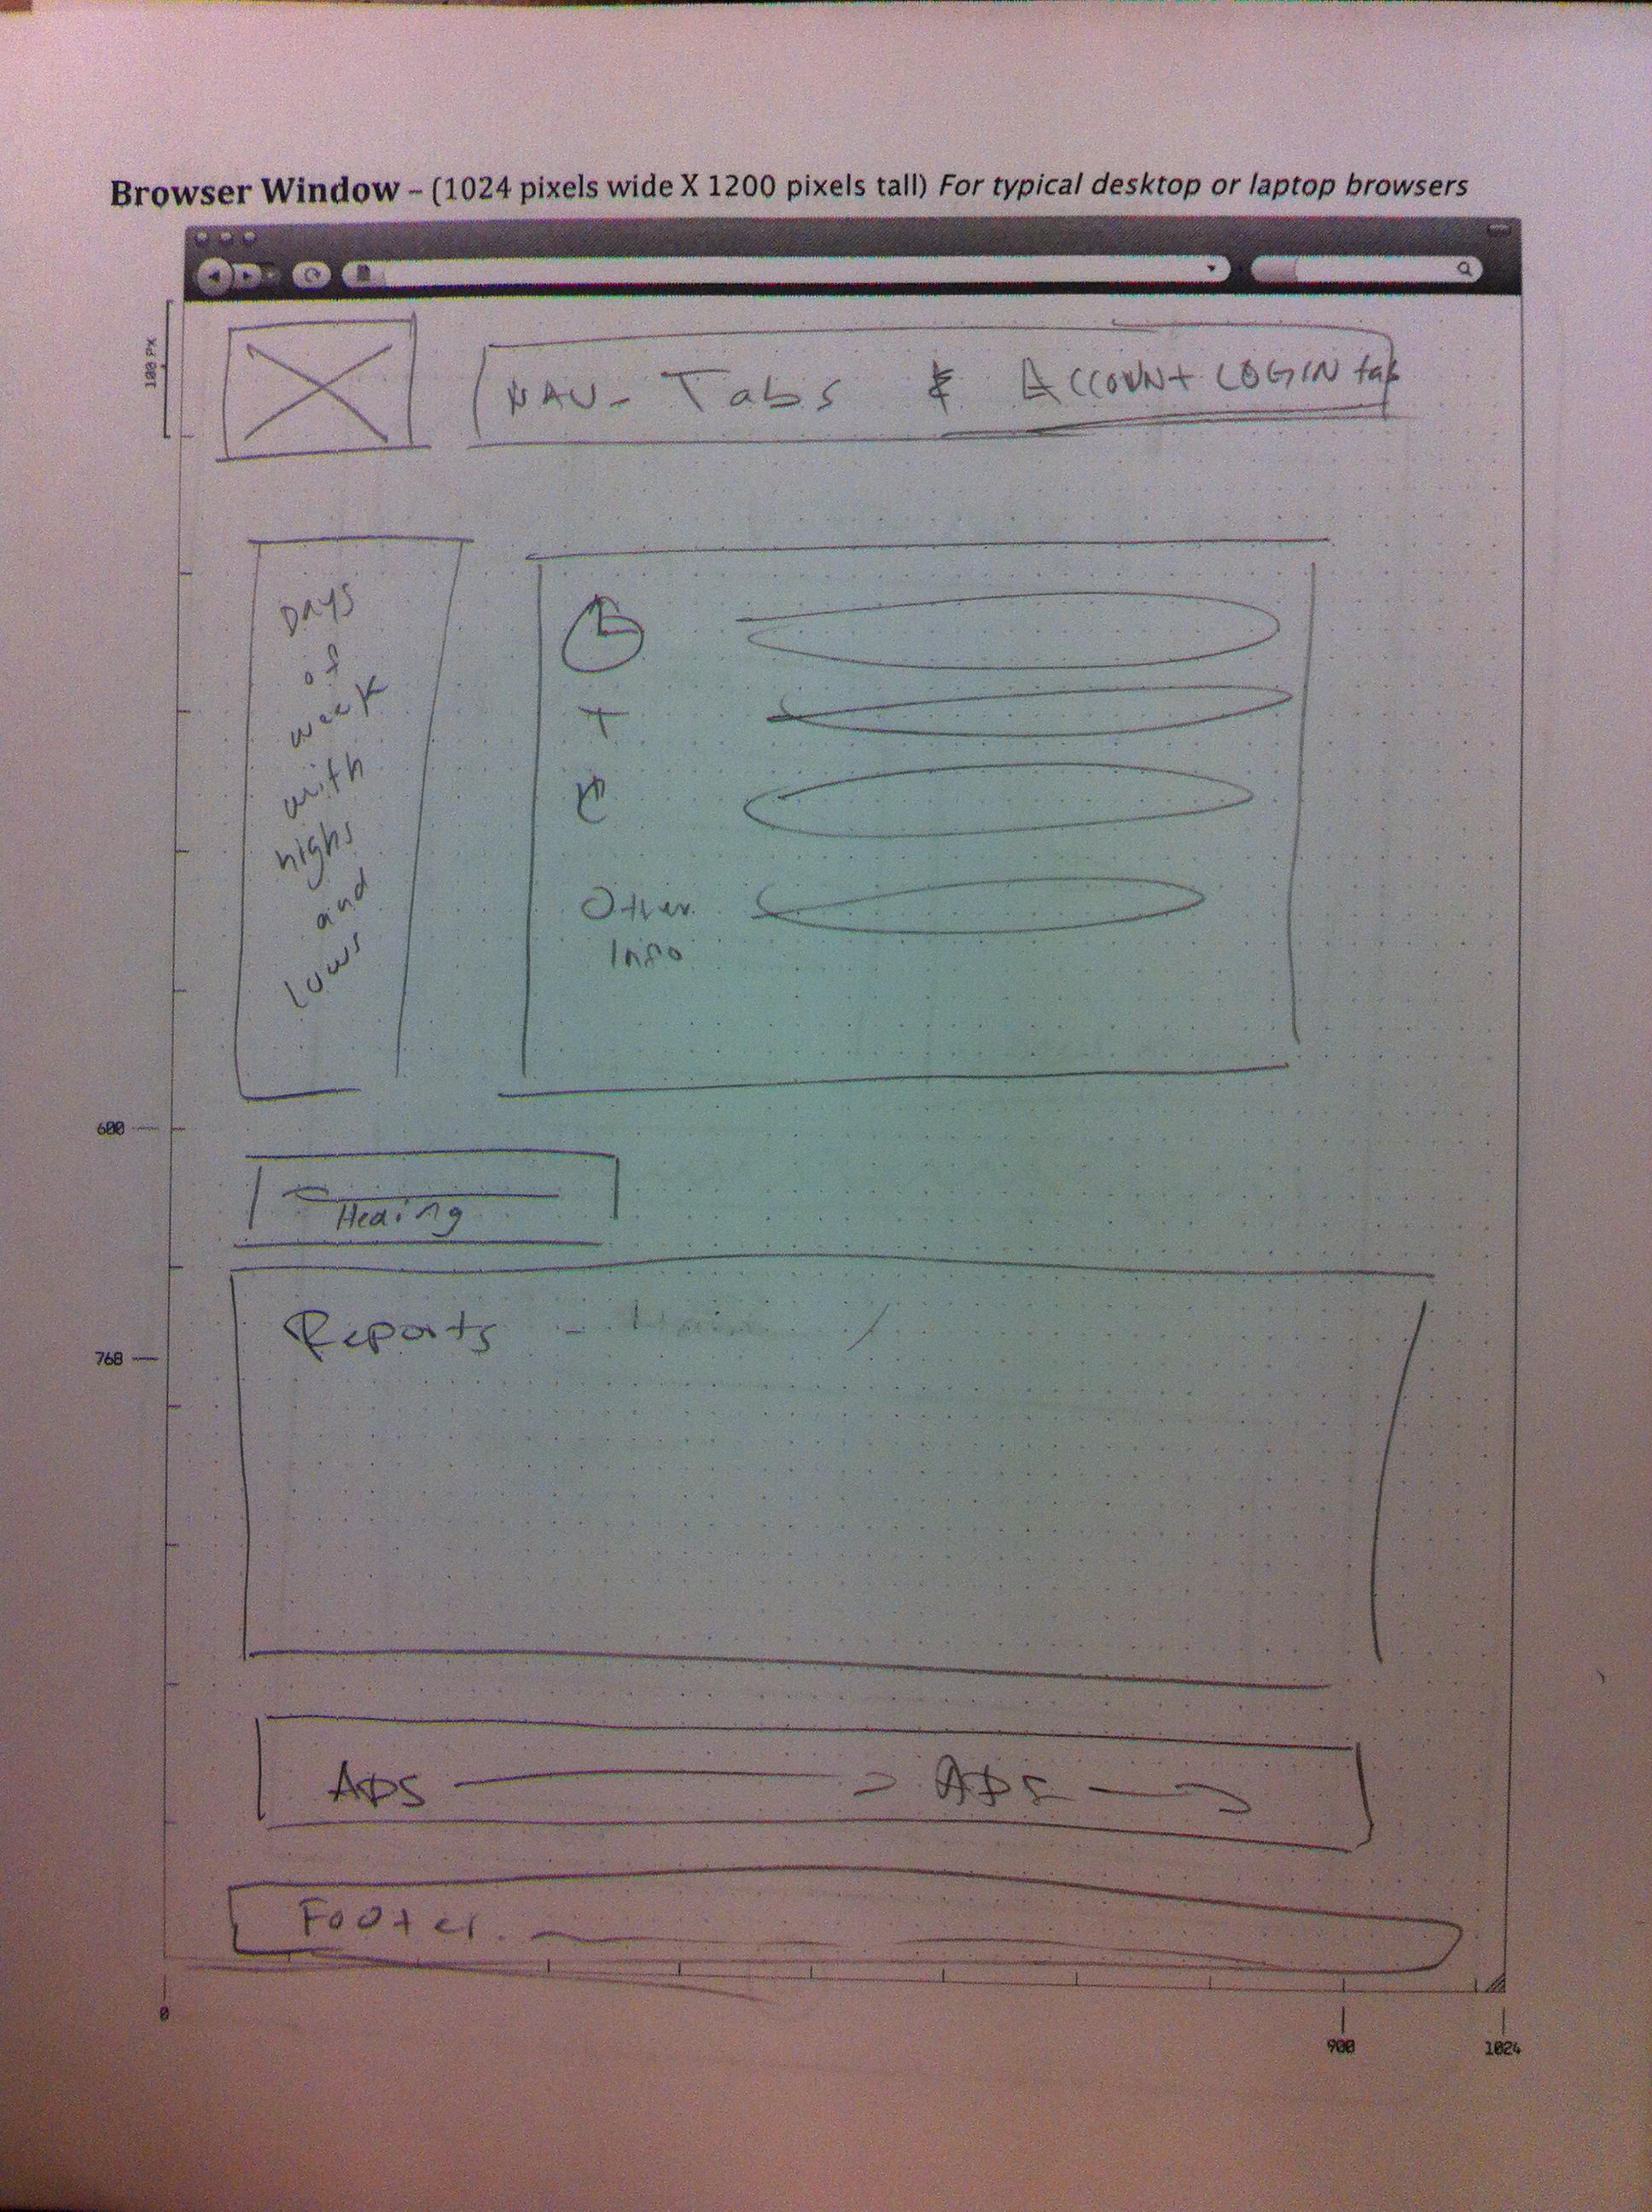 Browser Window – (1024 pixels wide X 1200 pixels tall) For typical desktop or laptop browsers
100 PX
NAV- Tabs & ACCOUNT LOGIN tab
Days
of
week
with
highs
and
lows
Other
Info
600
Heaing
Reports -
768
ADS ADS
Footer.
0
900
1024